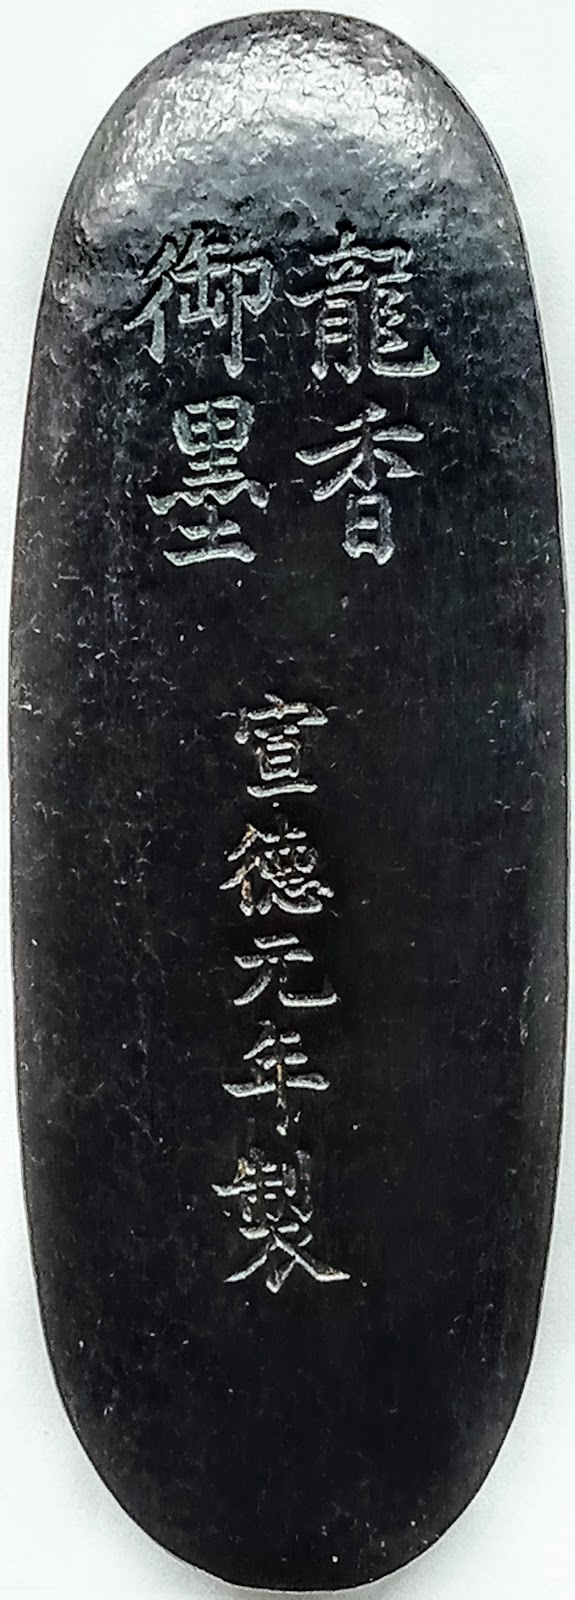 龍香
御墨
宣德元年製